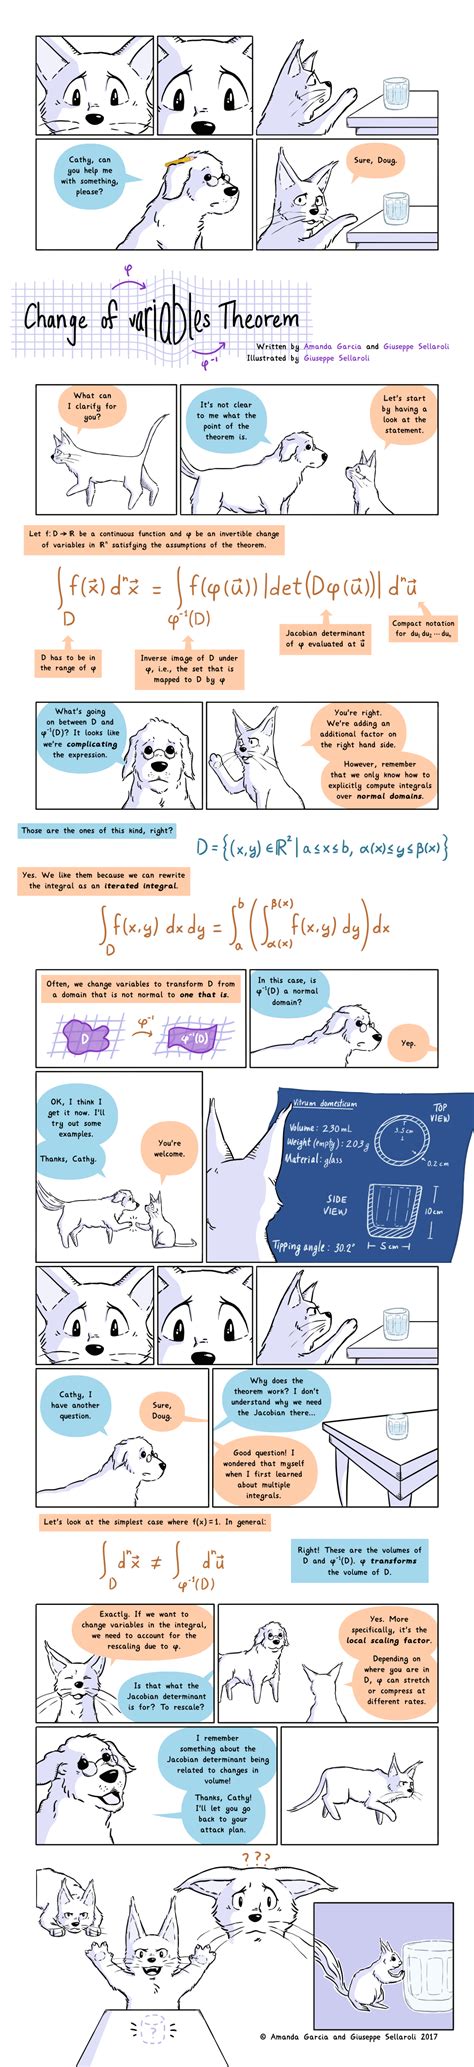 Cathy, can
you help me
with something,
please?
Sure, Doug.
φ
Change of variables Theorem
φ⁻¹
Written by Amanda Garcia and Giuseppe Sellaroli
Illustrated by Giuseppe Sellaroli
What can
I clarify for
you?
It's not clear
to me what the
point of the
theorem is.
Let's start
by having a
look at the
statement.
Let f: D → ℝ be a continuous function and φ be an invertible change
of variables in ℝⁿ satisfying the assumptions of the theorem.
∫_D f(x⃗) dⁿx⃗ = ∫_φ⁻¹(D) f(φ(u⃗)) |det(Dφ(u⃗))| dⁿu⃗
D has to be in
the range of φ
Inverse image of D under
φ, i.e., the set that is
mapped to D by φ
Jacobian determinant
of φ evaluated at u⃗
Compact notation
for du₁ du₂ ⋯ duₙ
What's going
on between D and
φ⁻¹(D)? It looks like
we're complicating
the expression.
You're right.
We're adding an
additional factor on
the right hand side.
However, remember
that we only know how to
explicitly compute integrals
over normal domains.
Those are the ones of this kind, right?
D = {(x,y) ∈ ℝ² | a ≤ x ≤ b, α(x) ≤ y ≤ β(x)}
Yes. We like them because we can rewrite
the integral as an iterated integral.
∫_D f(x,y) dx dy = ∫_a^b (∫_α(x)^β(x) f(x,y) dy) dx
Often, we change variables to transform D from
a domain that is not normal to one that is.
D
φ⁻¹
φ⁻¹(D)
In this case, is
φ⁻¹(D) a normal
domain?
Yep.
OK, I think I
get it now. I'll
try out some
examples.
Thanks, Cathy.
You're
welcome.
Vitrum domesticum
Volume: 230 mL
Weight (empty): 203 g
Material: glass
TOP
VIEW
3.5 cm
0.2 cm
SIDE
VIEW
10 cm
Tipping angle: 30.2°
5 cm
Cathy, I
have another
question.
Sure,
Doug.
Why does the
theorem work? I don't
understand why we need
the Jacobian there...
Good question! I
wondered that myself
when I first learned
about multiple
integrals.
Let's look at the simplest case where f(x) = 1. In general:
∫_D dⁿx⃗ ≠ ∫_φ⁻¹(D) dⁿu⃗
Right! These are the volumes of
D and φ⁻¹(D). φ transforms
the volume of D.
Exactly. If we want to
change variables in the integral,
we need to account for the
rescaling due to φ.
Is that what the
Jacobian determinant
is for? To rescale?
Yes. More
specifically, it's the
local scaling factor.
Depending on
where you are in
D, φ can stretch
or compress at
different rates.
I remember
something about the
Jacobian determinant being
related to changes in
volume!
Thanks, Cathy!
I'll let you go
back to your
attack plan.
???
?
© Amanda Garcia and Giuseppe Sellaroli 2017